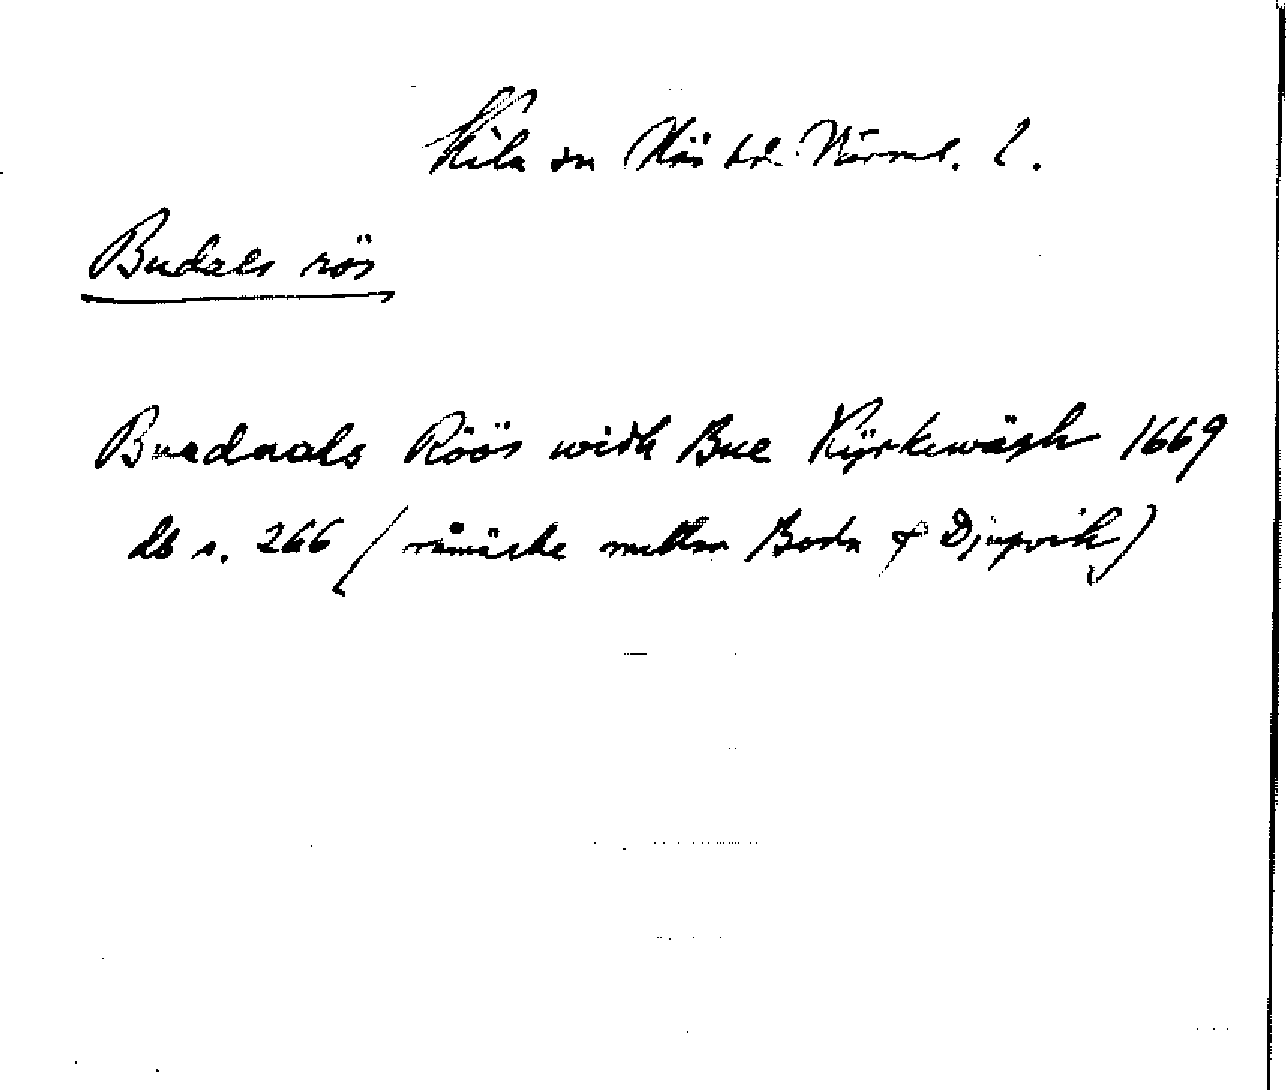 Kila sn Näs hd. Värml. l.
Budals rös
Buedaals Röös widh Bue Kÿrkewägh 1669
db s. 266 (råmärke mellan Boda & Djupvik)